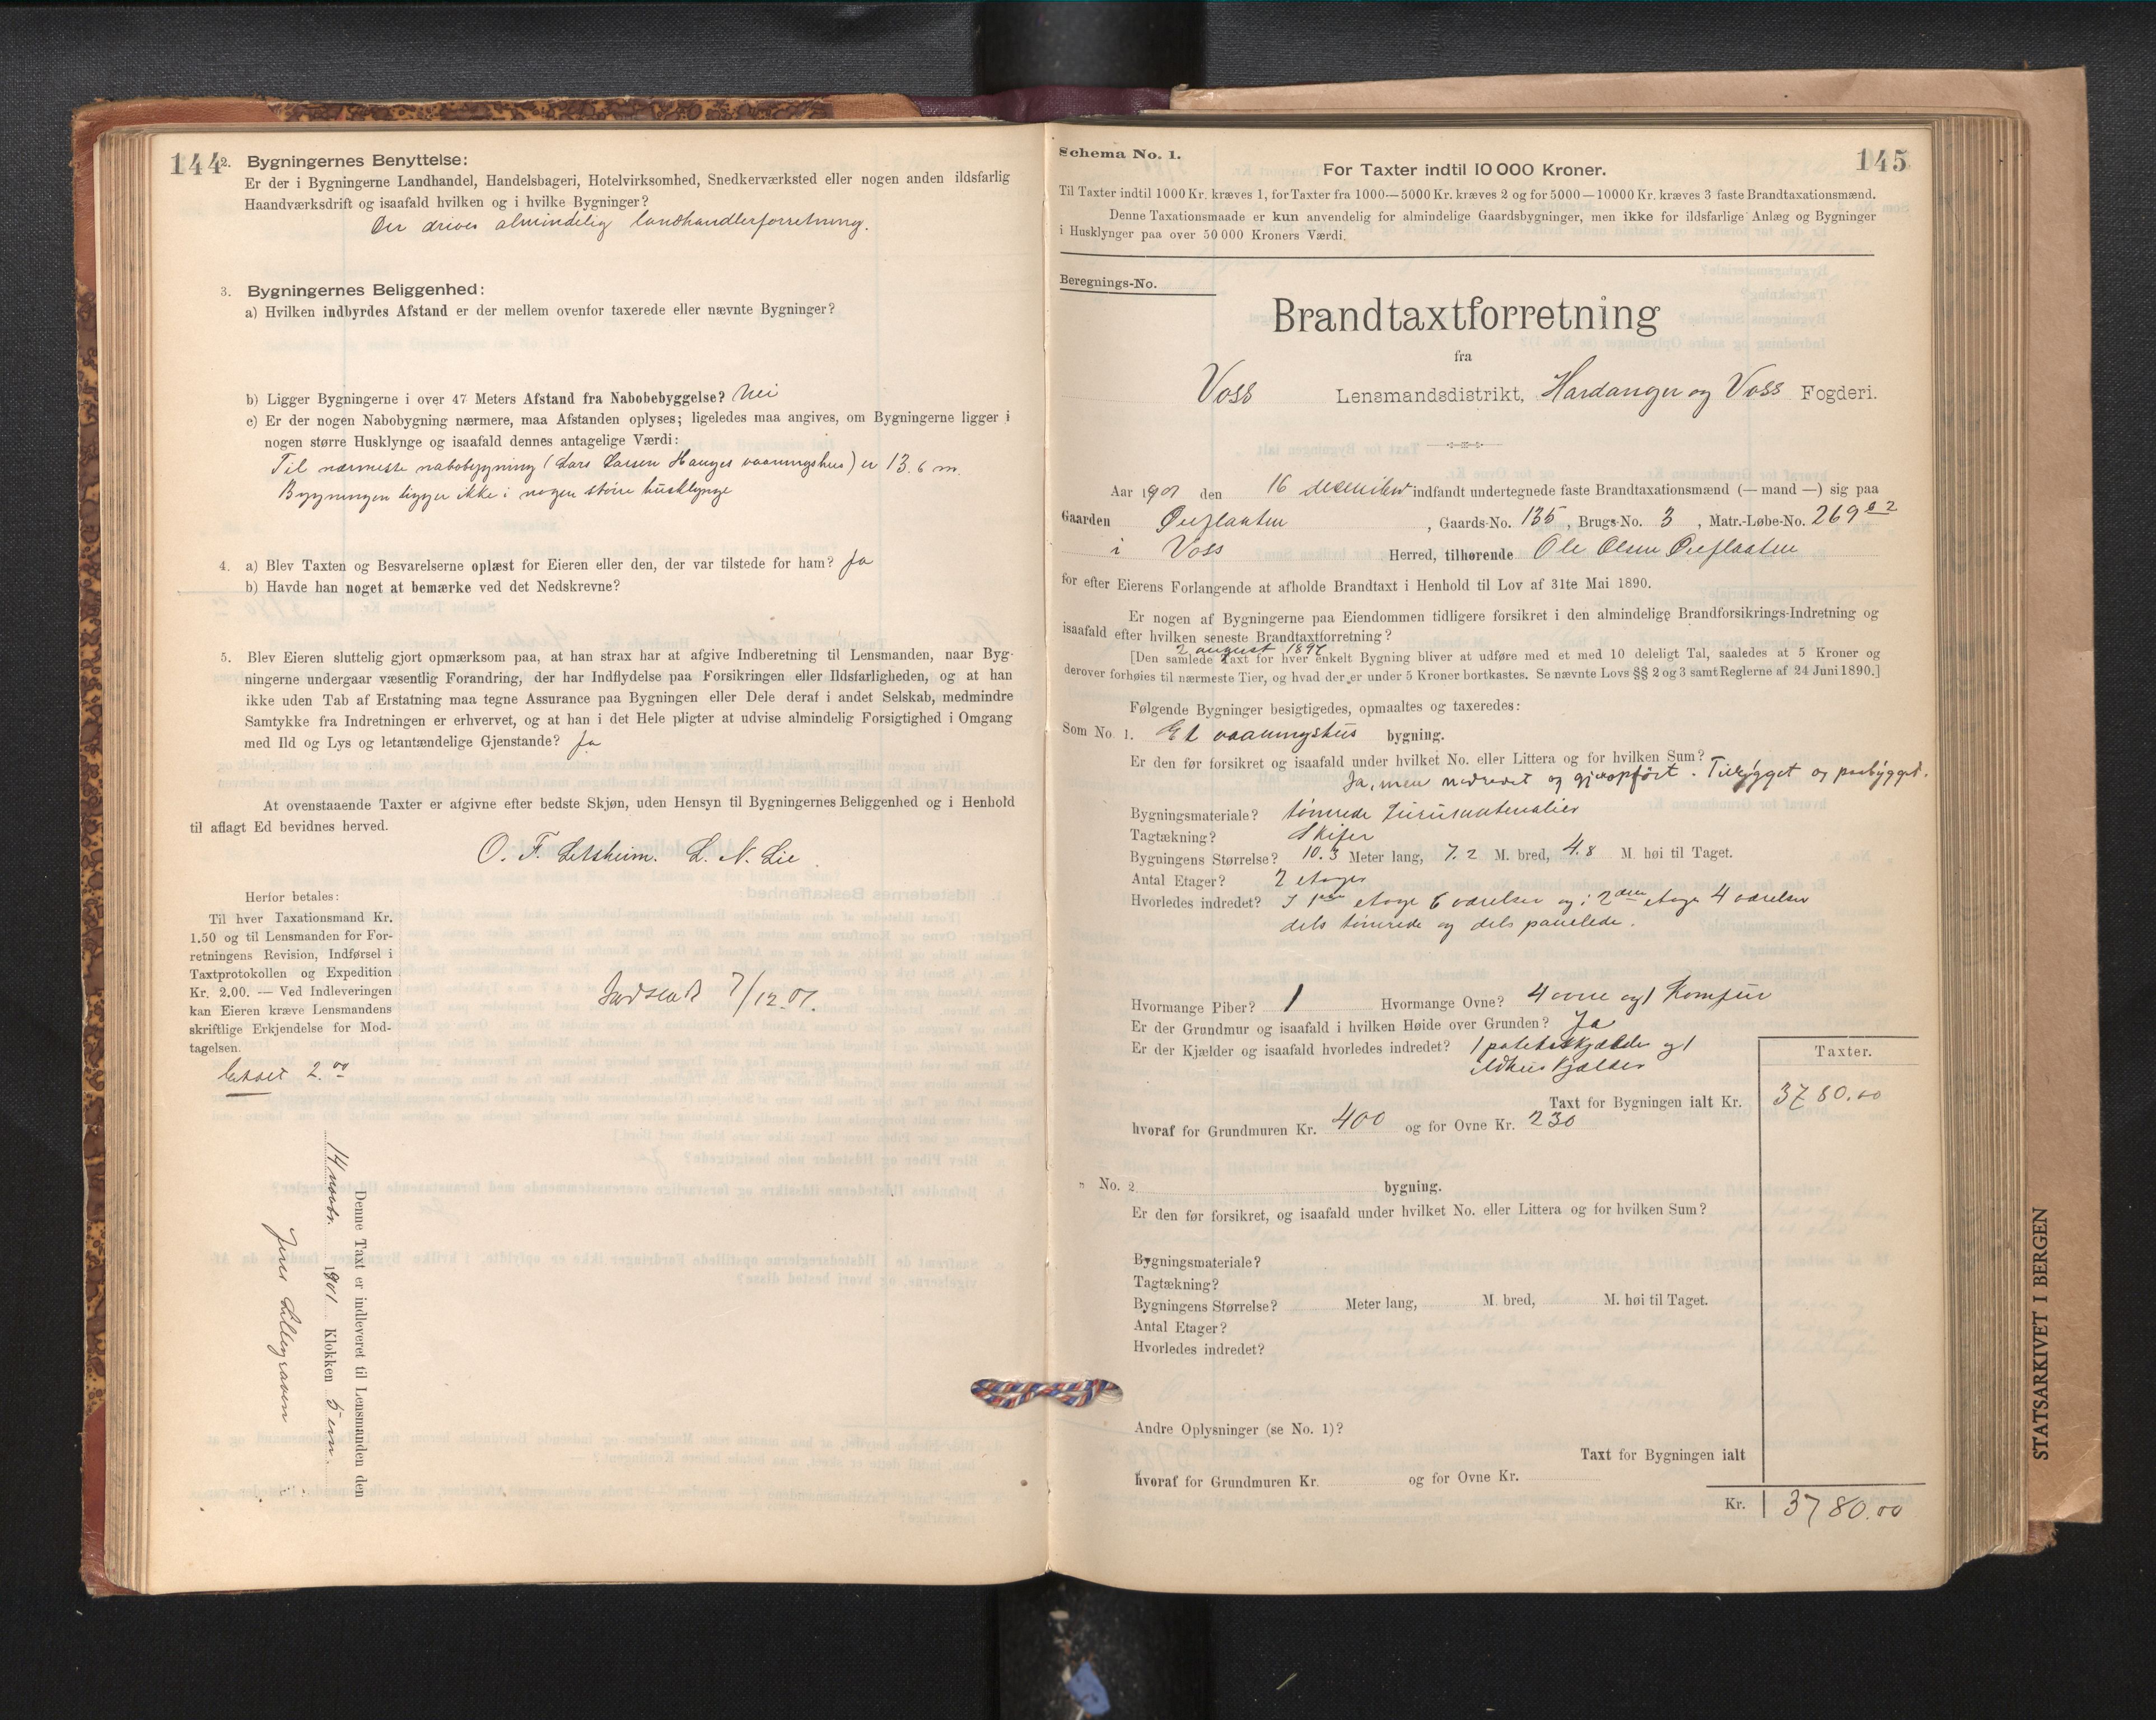 144
2. Bygningernes Benyttelse:
Er der i Bygningerne Landhandel, Handelsbageri, Hotelvirksomhed, Snedkerværksted eller nogen anden ildsfarlig
Haandværksdrift og isaafald hvilken og i hvilke Bygninger?
Der drives almindelig landhandlerforretning.
3. Bygningernes Beliggenhed:
a) Hvilken indbyrdes Afstand er der mellem ovenfor taxerede eller nævnte Bygninger?
b) Ligger Bygningerne i over 47 Meters Afstand fra Nabobebyggelse? Nei
c) Er der nogen Nabobygning nærmere, maa Afstanden oplyses; ligeledes maa angives, om Bygningerne ligger i
nogen større Husklynge og isaafald dennes antagelige Værdi:
Til nærmeste nabobygning (Lars Larsen Hauges vaaningshus) er 13.6 m.
Bygningen ligger ikke i nogen større husklynge
4. a) Blev Taxten og Besvarelserne oplæst for Eieren eller den, der var tilstede for ham? Ja
b) Havde han noget at bemærke ved det Nedskrevne?
5. Blev Eieren sluttelig gjort opmærksom paa, at han strax har at afgive Indberetning til Lensmanden, naar Byg-
ningerne undergaar væsentlig Forandring, der har Indflydelse paa Forsikringen eller Ildsfarligheden, og at han
ikke uden Tab af Erstatning maa tegne Assurance paa Bygningen eller Dele deraf i andet Selskab, medmindre
Samtykke fra Indretningen er erhvervet, og at han i det Hele pligter at udvise almindelig Forsigtighed i Omgang
med Ild og Lys og letantændelige Gjenstande? Ja
At ovenstaaende Taxter er afgivne efter bedste Skjøn, uden Hensyn til Bygningernes Beliggenhed og i Henhold
til aflagt Ed bevidnes herved.
O. F. Lksheim. L. N. Lie
Herfor betales:
Til hver Taxationsmand Kr.
1.50 og til Lensmanden for For-
retningens Revision, Indførsel i
Taxtprotokollen og Expedition
Kr. 2.00. — Ved Indleveringen
kan Eieren kræve Lensmandens
skriftlige Erkjendelse for Mod-
tagelsen.
2.00
Indsendt 7/12.01.
Denne Taxt er indleveret til Lensmanden den
14 novbr. 1901 Klokken 5 em.
Jens Lillegraven
Schema No. 1.
145
For Taxter indtil 10 000 Kroner.
Til Taxter indtil 1000 Kr. kræves 1, for Taxter fra 1000—5000 Kr. kræves 2 og for 5000—10000 Kr. kræves 3 faste Brandtaxationsmænd.
Denne Taxationsmaade er kun anvendelig for almindelige Gaardsbygninger, men ikke for ildsfarlige Anlæg og Bygninger
i Husklynger paa over 50 000 Kroners Værdi.
Beregnings-No.
Brandtaxtforretning
fra
Voss Lensmandsdistrikt, Hardanger og Voss Fogderi.
Aar 1901 den 16 desember indfandt undertegnede faste Brandtaxationsmænd (— mand —) sig paa
Gaarden , Gaards-No. 135, Brugs-No. 3, Matr.-Løbe-No. 269 b 2
i Voss Herred, tilhørende Ole Olsen
for efter Eierens Forlangende at afholde Brandtaxt i Henhold til Lov af 31te Mai 1890.
Er nogen af Bygningerne paa Eiendommen tidligere forsikret i den almindelige Brandforsikrings-Indretning og
isaafald efter hvilken seneste Brandtaxtforretning?
2 august 1897
[Den samlede Taxt for hver enkelt Bygning bliver at udføre med et med 10 deleligt Tal, saaledes at 5 Kroner og
derover forhøies til nærmeste Tier, og hvad der er under 5 Kroner bortkastes. Se nævnte Lovs §§ 2 og 3 samt Reglerne af 24 Juni 1890.]
Følgende Bygninger besigtigedes, opmaaltes og taxeredes:
Som No 1. Et vaaningshus bygning.
Er den før forsikret og isaafald under hvilket No. eller Littera og for hvilken Sum?
Ja, men nedrevet og gjenopført. Tilbygget og paabygget.
Bygningsmateriale? tømrede furumaterialier
Tagtækning? Skifer
Bygningens Størrelse? 10.3 Meter lang, 7.2 M. bred, 4.8 M. høi til Taget.
Antal Etager? 2 etager
Hvorledes indredet? I 1ste etage 6 værelser og i 2den etage 4 værelser
dels tømrede og dels panelede.
Hvormange Piber? 1 Hvormange Ovne? 4 ovne og 1 Komfür
Er der Grundmur og isaafald i hvilken Høide over Grunden? Ja
Er der Kjælder og isaafald hvorledes indredet? 1 potetkjælder og 1
ildhuskjælder
Taxter.
Taxt for Bygningen ialt Kr. 3780.00
hvoraf for Grundmuren Kr. 400 og for Ovne Kr. 230
" No. 2 bygning.
Er den før forsikret, og isaafald under hvilket No. eller Littera og for hvilken Sum?
Bygningsmateriale?
Tagtækning?
Bygningens Størrelse? Meter lang, M. bred, M. høi til Taget.
Antal Etager?
Hvorledes indredet?
Andre Oplysninger (se No. 1)?
Taxt for Bygningen ialt
hvoraf for Grundmuren Kr. og for Ovne Kr.
Kr. 3780.00
STATSARKIVET I BERGEN